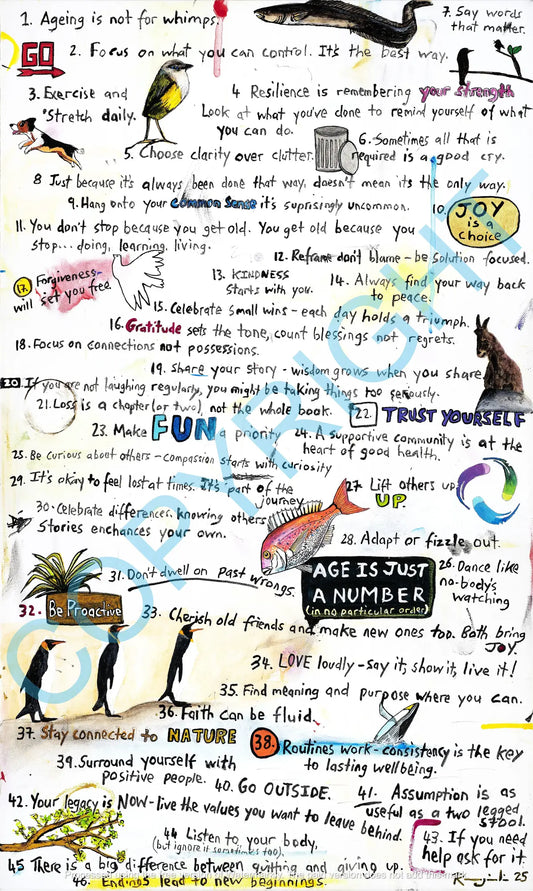 1. Ageing is not for whimps.
7. Say words
that matter.
GO
2. Focus on what you can control. It's the best way.
3. Exercise and
stretch daily.
4 Resilience is remembering your strength
Look at what you've done to remind yourself of what
you can do.
5. Choose clarity over clutter.
6. Sometimes all that is
required is a good cry.
8 Just because it's always been done that way, doesn't mean its the only way.
9. Hang onto your common sense it's suprisingly uncommon.
10. JOY
is a
choice
11. You don't stop because you get old. You get old because you
stop... doing, learning, living.
12. Reframe don't blame - be solution focused.
17. Forgiveness
will set you free
13. KINDNESS
starts with you.
14. Always find your way back
to peace.
15. Celebrate small wins - each day holds a triumph.
16. Gratitude sets the tone, count blessings not regrets.
18. Focus on connections not possessions.
19. Share your story - wisdom grows when you share
20. If you are not laughing regularly, you might be taking things too seriously.
21. Loss is a chapter (or two), not the whole book.
22. TRUST YOURSELF
23. Make FUN a priority
24. A supportive community is at the
heart of good health.
25. Be curious about others - compassion starts with curiosity
29. It's okay to feel lost at times. It's part of the
journey
27. Lift others up
UP.
30. Celebrate differences, knowing others
stories enchances your own.
28. Adapt or fizzle out.
31. Don't dwell on past wrongs.
AGE IS JUST
A NUMBER
(in no particular order)
26. Dance like
no-body's
watching
32. Be Proactive
33. Cherish old friends and make new ones too. Both bring
JOY.
34. LOVE loudly - say it, show it, live it!
35. Find meaning and purpose where you can.
36. Faith can be fluid.
37. Stay connected to NATURE
38. Routines work - consistency is the key
to lasting wellbeing.
39. Surround yourself with
positive people.
40. GO OUTSIDE.
41. Assumption is as
useful as a two legged
stool.
42. Your legacy is NOW - live the values you want to leave
behind.
43. If you need
help ask for it.
44 Listen to your body,
(but ignore it sometimes too).
45 There is a big difference between quitting and giving up.
46. Endings lead to new beginnings.
25
COPYRIGHT